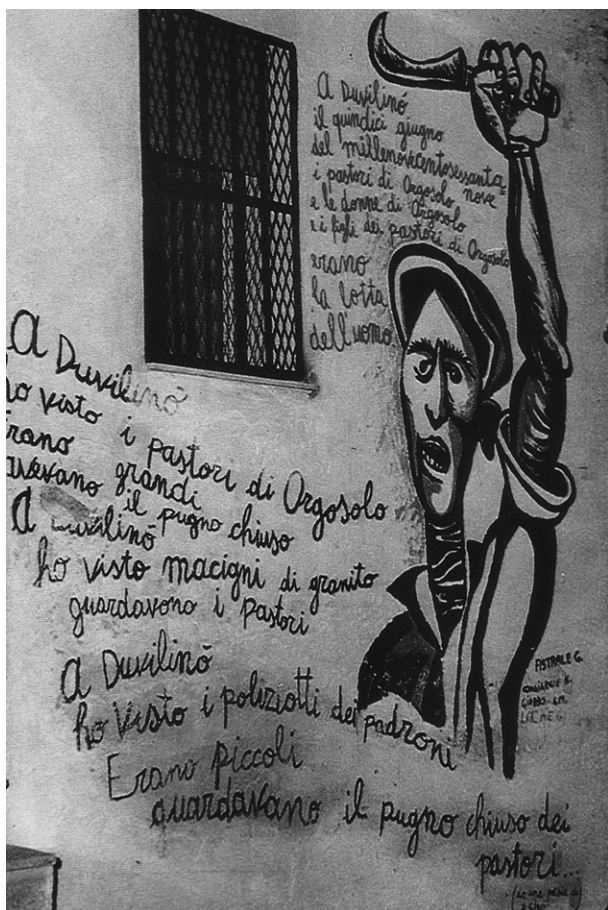 A Duvilinò
il quindici giugno
del millenovicentosessanta-
nove
i pastori di Orgosolo
e le donne di Orgosolo
e i figli dei pastori di Orgosolo
erano
la lotta
dell'uomo
A Duvilinò
ho visto i pastori di Orgosolo
Erano grandi
avevano il pugno chiuso
A Duvilinò
ho visto macigni di granito
guardavono i pastori
A Duvilinò
ho visto i poliziotti dei padroni
Erano piccoli
guardavano il pugno chiuso dei
pastori...
PISTRALE G.